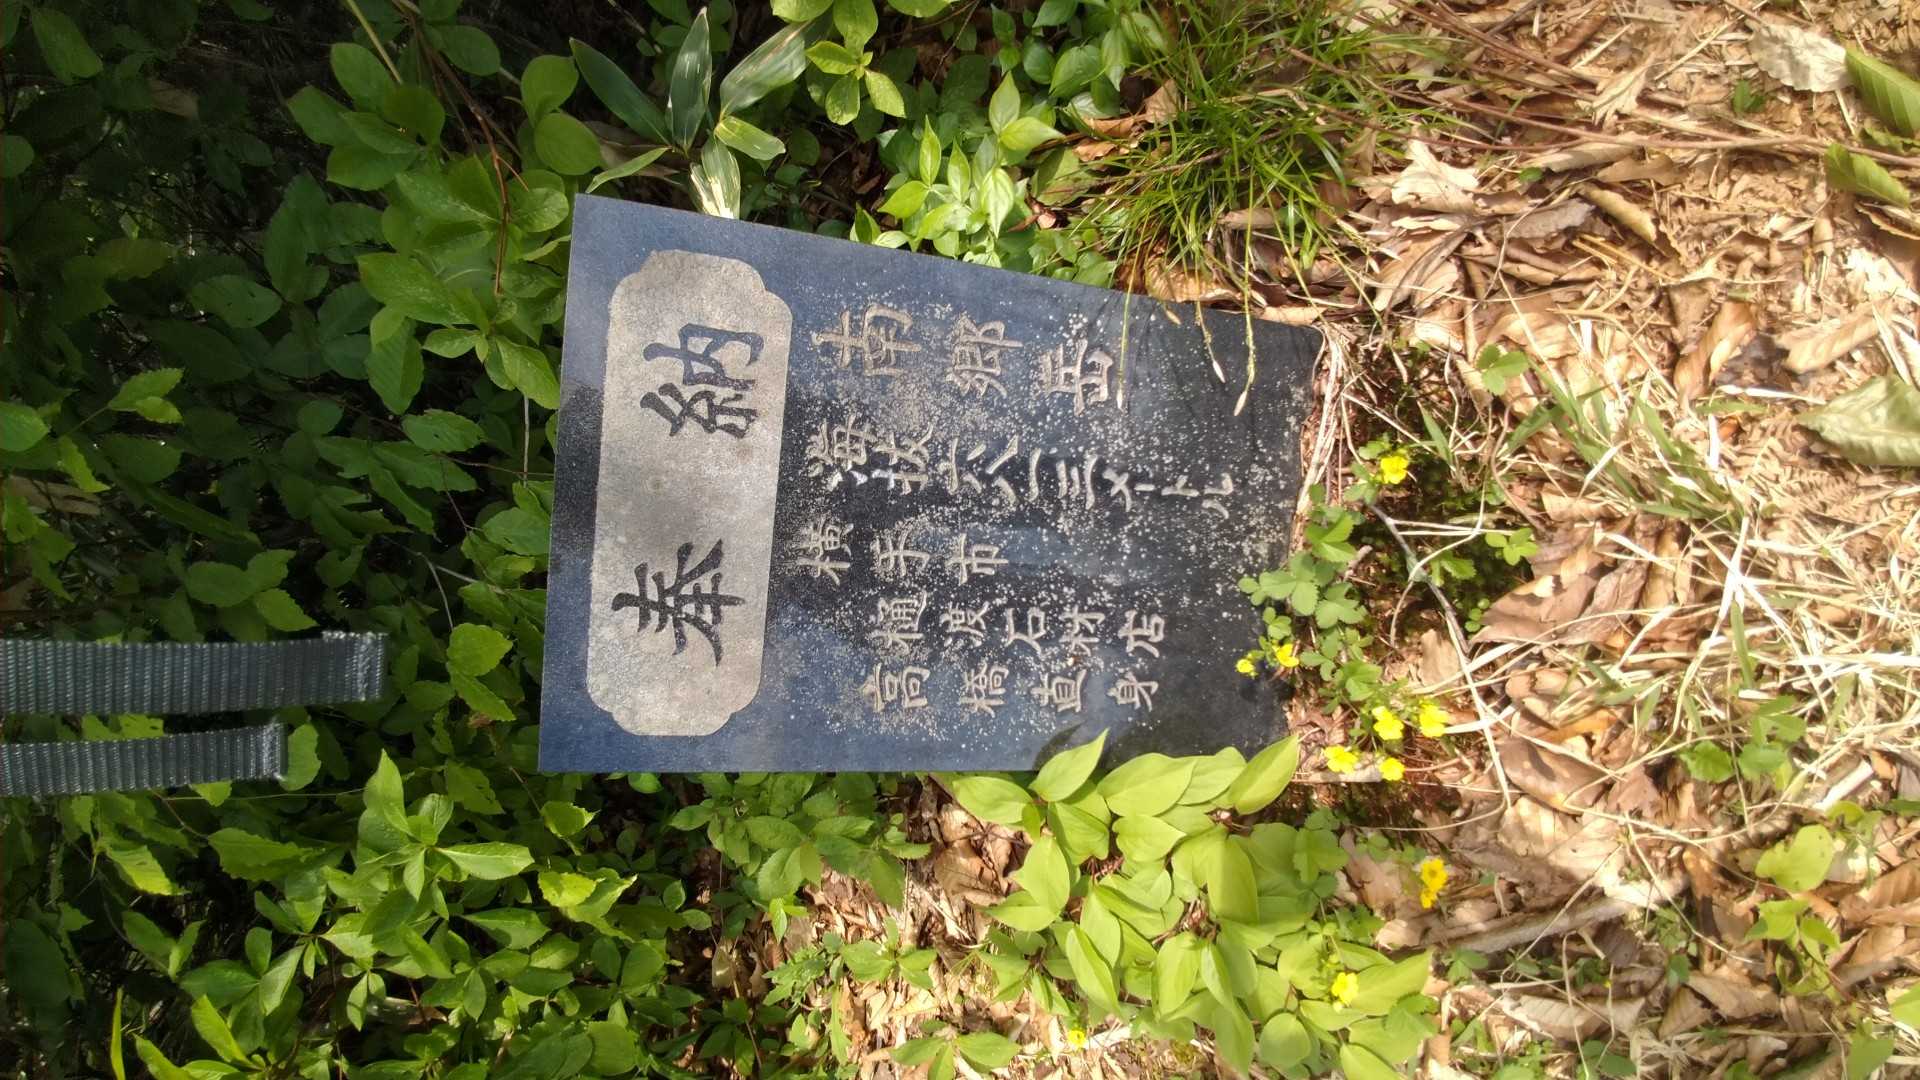 奉納
南郷岳
海抜六八一三メートル
横手市
樋渡石材店
高橋直身